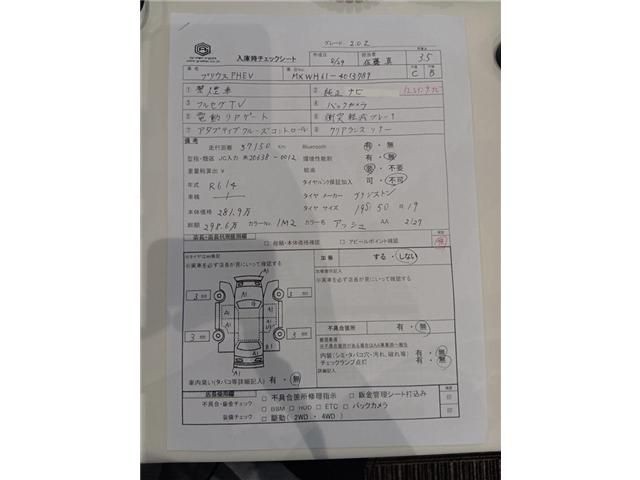 グレード 2.0 Z
入庫時チェックシート
作成日 2/29 担当者 佐藤 真 3.5
車名 プリウスPHEV 車台No. MXWH61-4013789 C B
① 禁煙車 ② 純正ナビ 12.3インチナビ
③ フルセグTV ④ バックカメラ
⑤ 電動リアゲート ⑥ 衝突軽減ブレーキ
⑦ アダプティブクルーズコントロール ⑧ クリアランスソナー
備考
走行距離 37150 km Bluetooth 有・無
型指・類区 JC入力 ※20638-0012 環境性能割 有・無
重量税算出 ¥ 給油 要・不要
年式 R6.14 タイヤパンク保証加入 可・不可
車検 タイヤ メーカー ブリジストン
本体価格 281.9万 タイヤ サイズ 195/50 R 19
総額 298.6万 カラーNo 1M2 カラー名 アッシュ AA 2/27
店長・店長代理使用欄 □ 総額・本体価格確認 □ アピールポイント確認
※実車を必ず店長が見にいって確認する
加修 する・しない
※実車を必ず店長が見にいって確認する
A1
3 mm 3 mm
3 mm 3 mm
不具合箇所 有・無
内装(シミ・タバコ穴・汚れ、破れ等) 有・無
チェックランプ点灯 有・無
詳細記入
車内臭い(タバコ等詳細記入) 有・無
店長使用欄 □ 不具合箇所修理指示 □ 鈑金管理シート打込み
不具合・鈑金チェック □ BSM □ HUD □ ETC □ バックカメラ
装備チェック □ 駆動(2WD ・ 4WD)